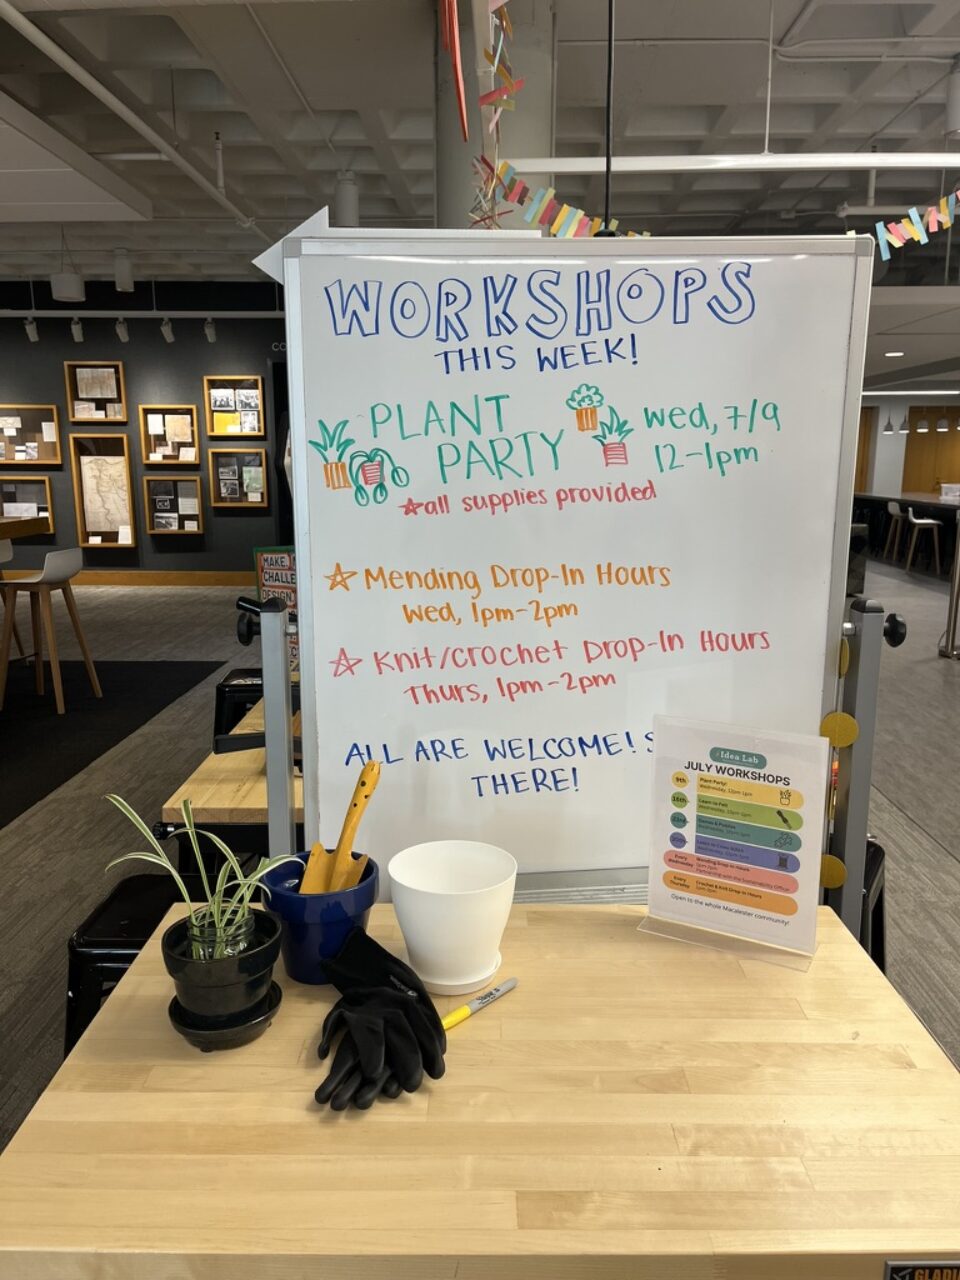 WORKSHOPS
THIS WEEK!
PLANT
PARTY
wed, 7/9
12-1pm
all supplies provided
Mending Drop-In Hours
Wed, 1pm-2pm
Knit/crochet Drop-In Hours
Thurs, 1pm-2pm
ALL ARE WELCOME! S
THERE!
Idea Lab
JULY WORKSHOPS
9th
Plant Party:
Wednesday, 12pm-1pm
16th
Learn to Felt
23rd
Every
Wednesday
Mending Drop-In Hours
1pm-2pm
Partnership with the Sustainability Office
Every
Thursday
Crochet & Knit Drop-In Hours
1pm-2pm
Open to the whole Macalester community!
MAKE.
CHALLE
DESIGN
CO
Sharpie
GLADI